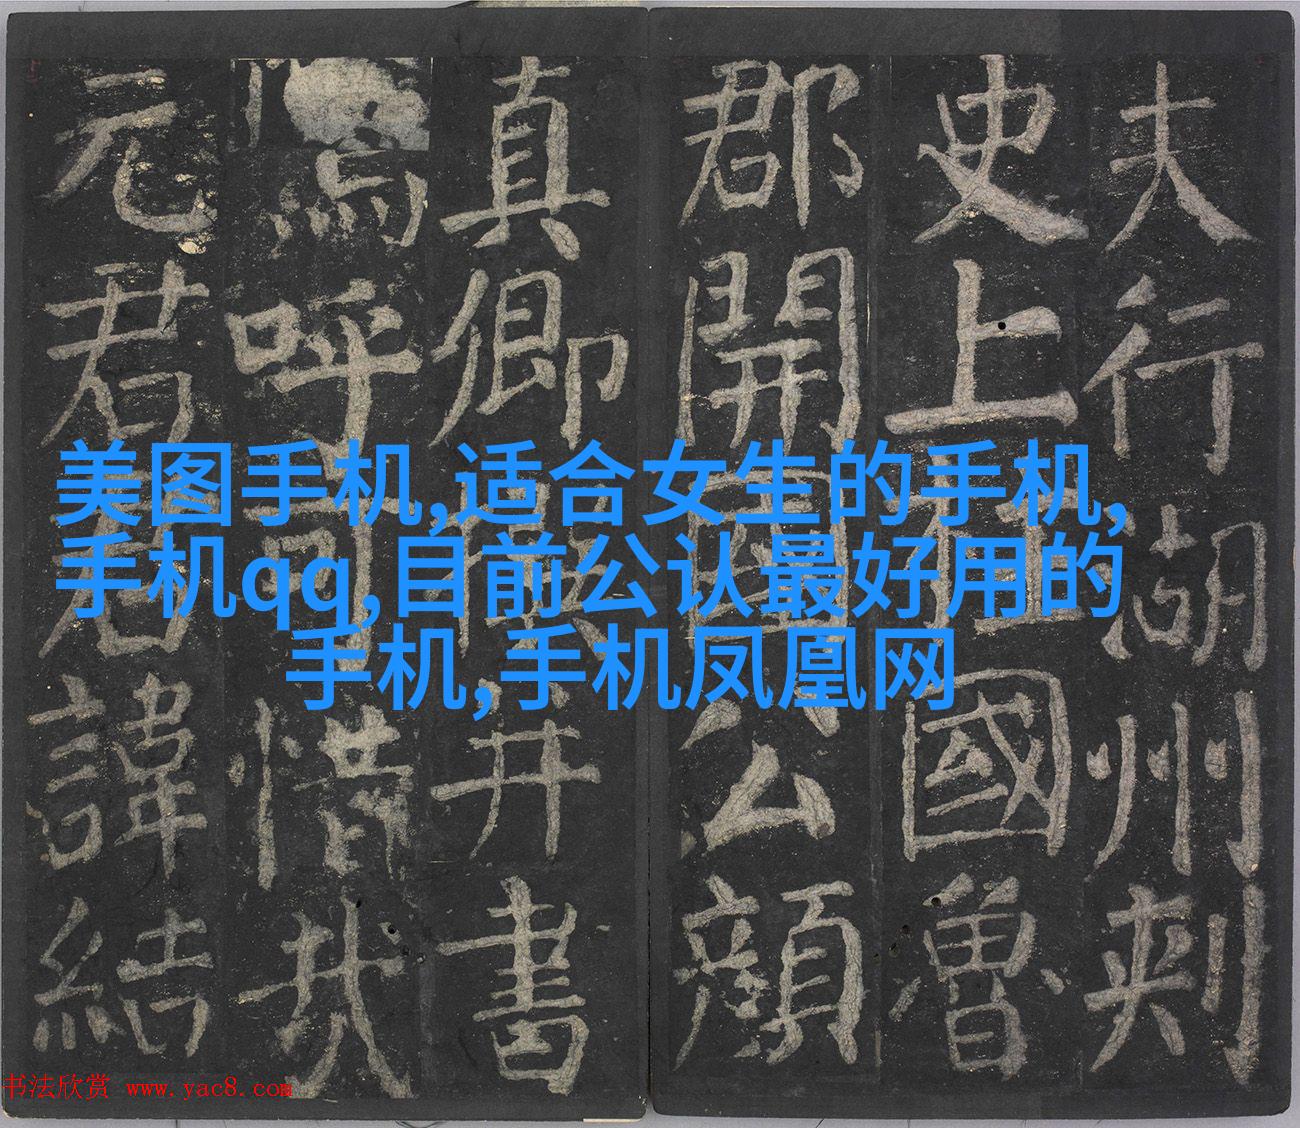 夫行湖州刺
史上柱國魯
郡開國公顏
真卿撰并書
嗚呼可惜哉
元君君諱結
美图手机,适合女生的手机,
手机qq,目前公认最好用的
手机,手机凤凰网
书法欣赏 www.yac8.com